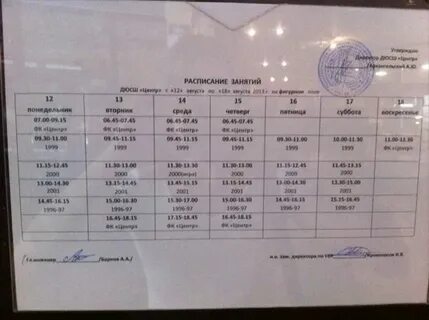 Утверждаю
Директор ДЮСШ «Центр»
РАСПИСАНИЕ ЗАНЯТИЙ
ДЮСШ «Центр» с «12» августа по «18» августа
12 13 14 15 16 17 18
понедельник вторник среда четверг пятница суббота воскресенье
07.00-09.15 06.45-07.45 06.45-07.45 06.45-07.45
ФК «Центр» ФК «Центр» ФК «Центр» ФК «Центр»
09.30-11.00 09.30-11.00 09.30-11.00 09.30-11.00 09.30-11.00 10.00-11.30 11.00-12.30
1999 1999 1999 1999 1999 1999 ФК «Центр»
11.15-12.45 11.15-12.45 11.30-13.00 11.30-13.00 11.15-12.45 11.45-13.15
2000 2000 2000 2000 2000 2000
13.00-14.30 13.15-14.45 13.15-14.45 13.15-14.45 13.00-14.30 13.30-15.00
2001 2001 2001 2001 2001 2001
14.45-16.15 15.00-16.30 15.30-17.00 15.00-16.30 14.45-16.15
1996-97 1996-97 1996-97 1996-97 1996-97 1996-97
16.45-18.15 17.15-18.45 16.45-18.15
ФК «Центр» ФК «Центр» ФК «Центр»
и.о. зам. директора по